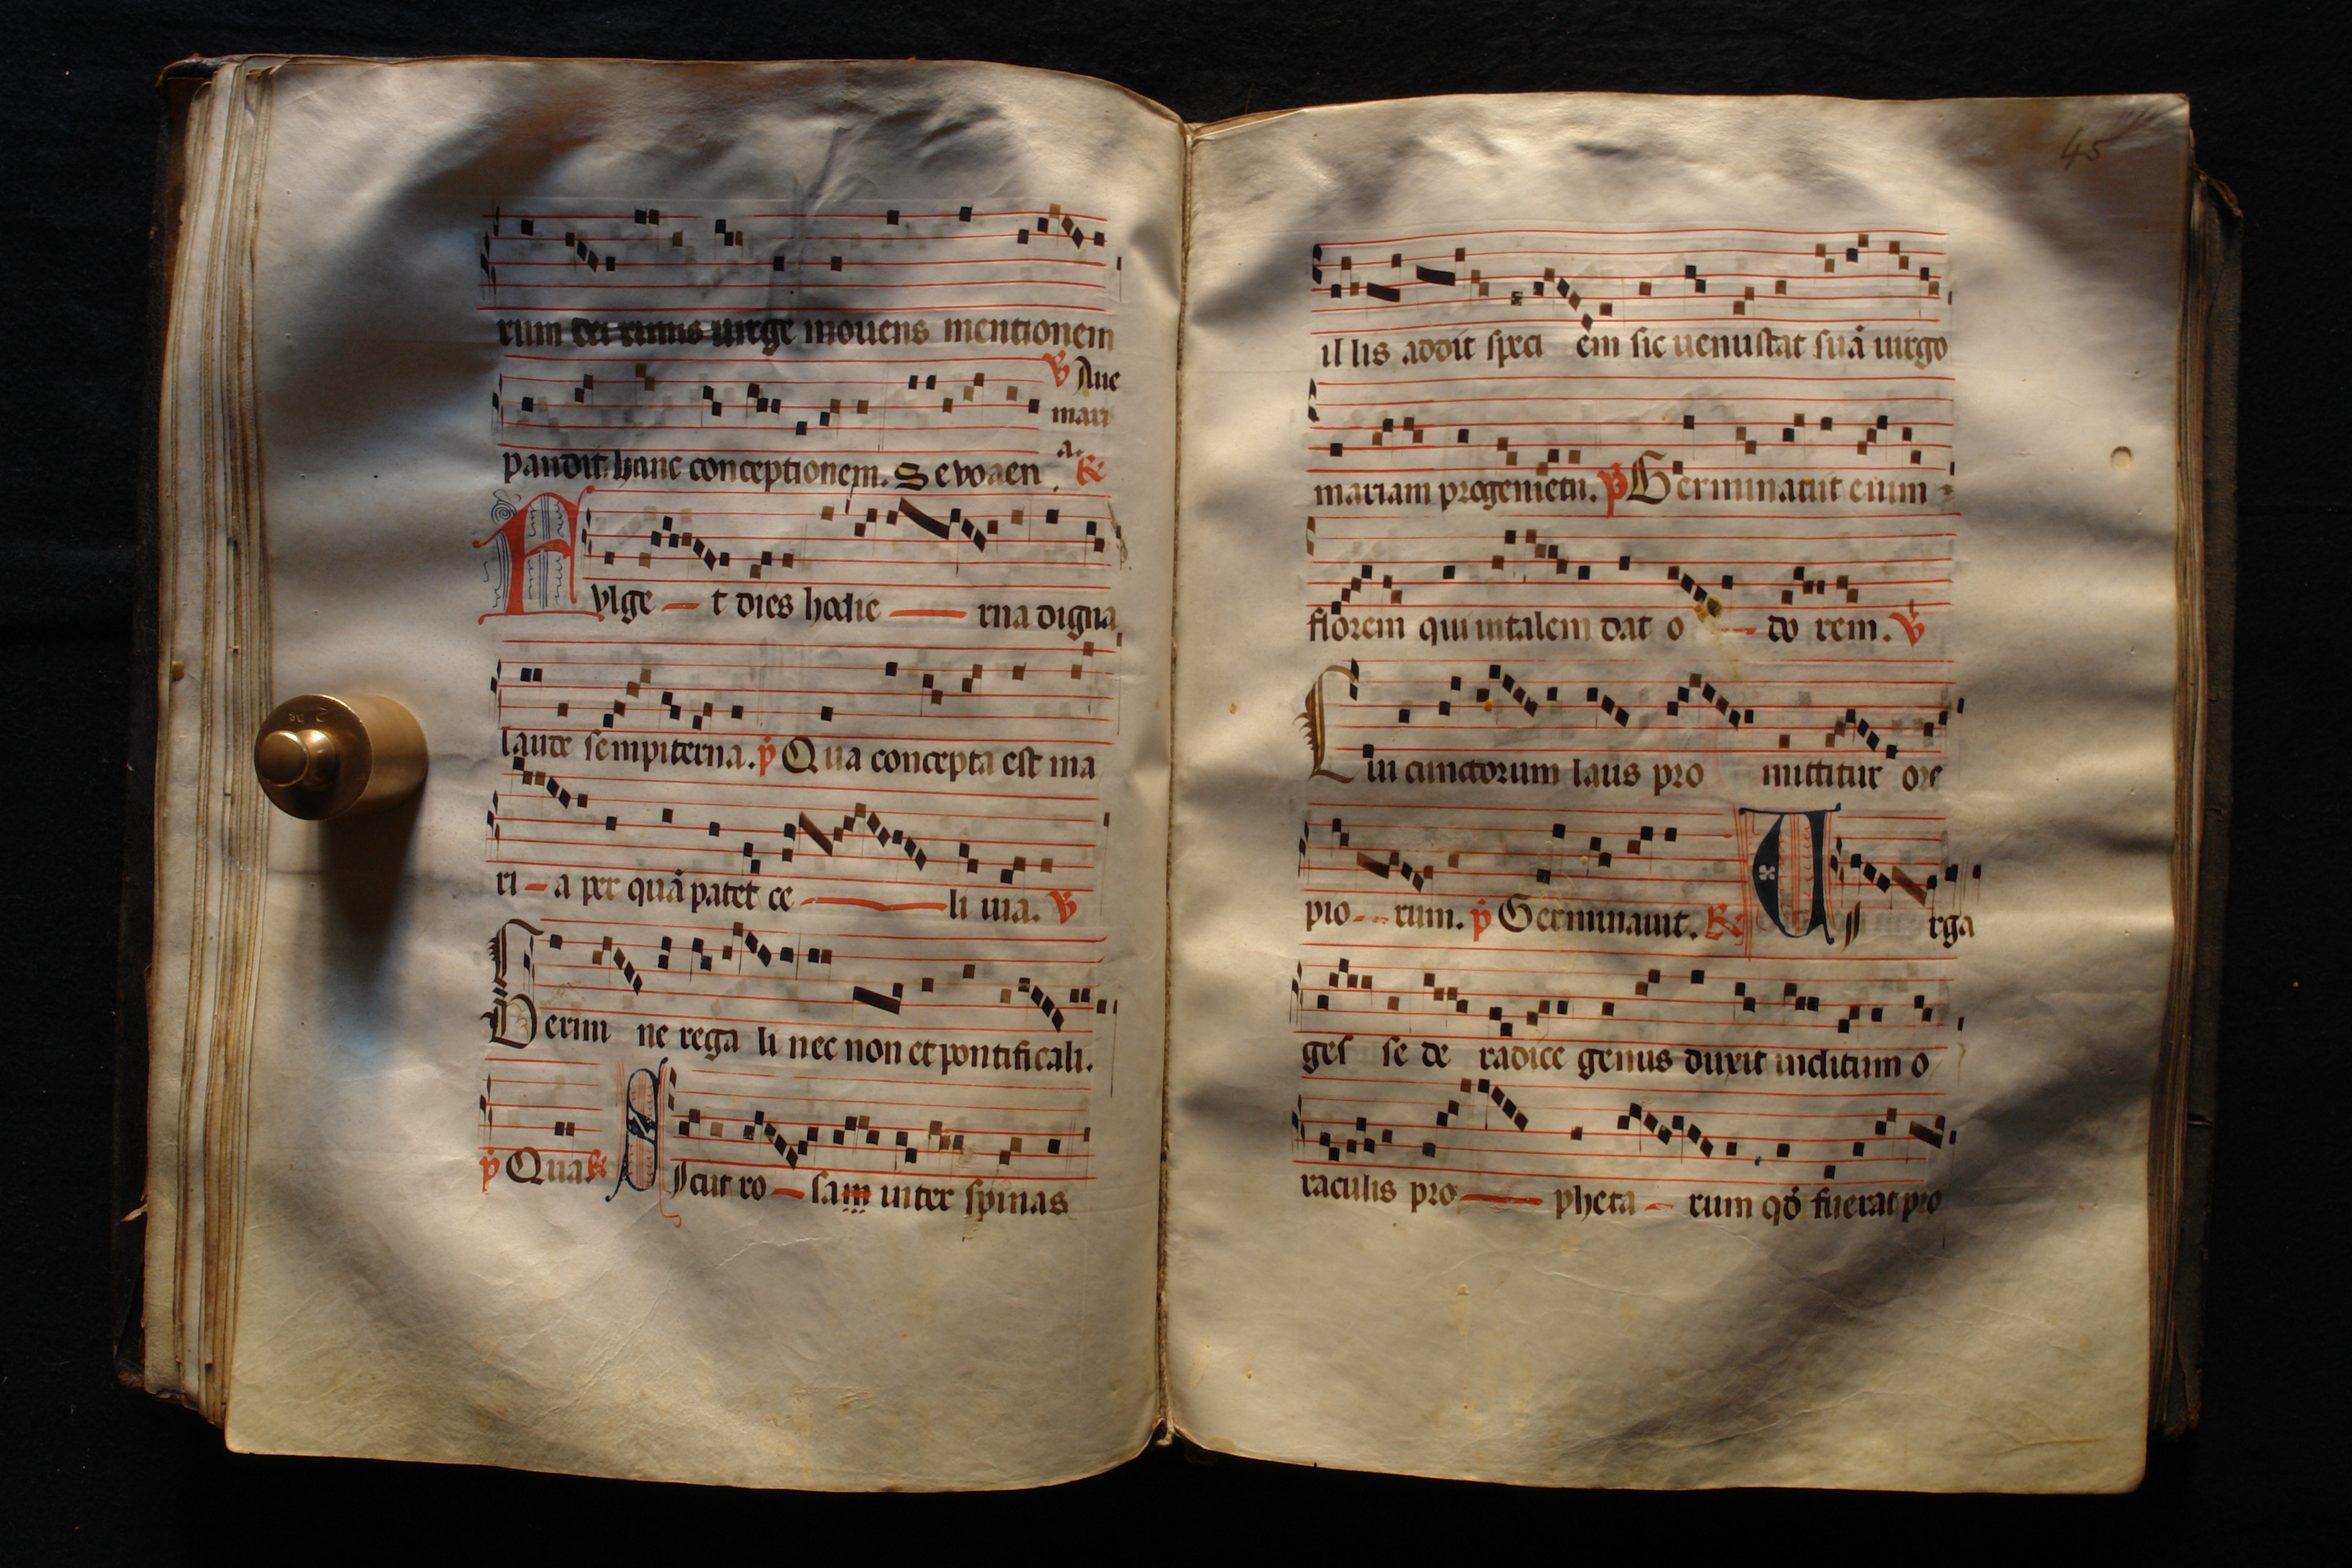 rum dei runis uirge mouens mentionem
℣ Aue
mari
a.
pandit hanc conceptionem. Seuouaen ℟
Fvlge — t dies hodie — rna digna
laude sempiterna. p̃ Qua concepta est ma
ri — a per quã patet ce — li uia. ℣
Germi ne rega li nec non et pontificali.
p̃ Qua ℟ Sicut ro — sam inter spinas
45
il lis addit speci em sic uenustat suã uirgo
mariam progeniem. p̃ Germinauit enim
florem qui uitalem dat o — do rem. ℣
Cui cunctorum laus pro mittitur ore
pio - - rum. p̃ Germinauit. ℟ Uirga
ges se de radice genus duxit inclitum o
raculis pro — pheta — rum qõ fuerat pro